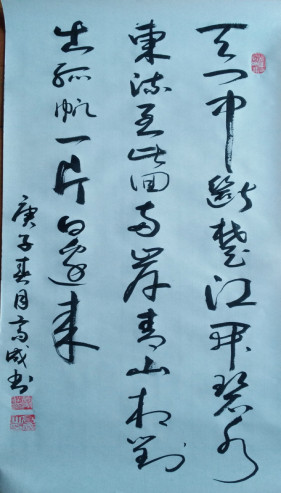 天门中斷楚江開碧水
東流至此回两岸青山相對
出孤帆一片日邊來
庚子春月高成书